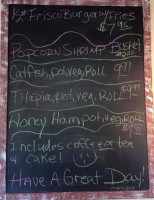 Frisco Burger w/ Fries
$7.95
Popcorn Shrimp Basket
Catfish, pot, veg, Roll 9.99
Tilapia, pot, veg, Roll
Honey Ham, pot, veg, Roll
Includes coffee or tea
& cake!
Have A Great Day!